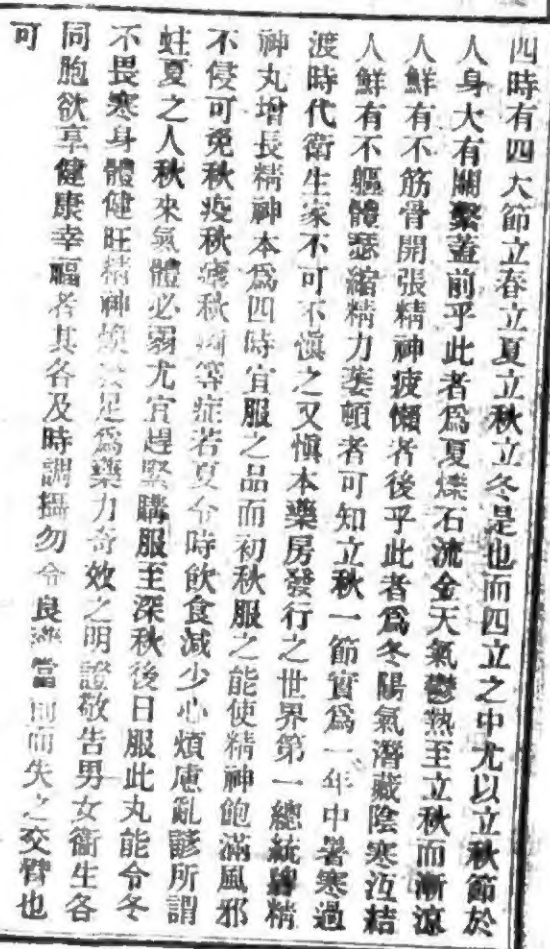 四時有四大節立春立夏立秋立冬是也而四立之中尤以立秋節於
人身大有關繫蓋前乎此者爲夏爍石流金天氣鬱熱至立秋而漸涼
人鮮有不筋骨開張精神疲懶者後乎此者爲冬陽氣潛藏陰寒冱結
人鮮有不軀體瑟縮精力萎頓者可知立秋一節實爲一年中暑寒過
渡時代衛生家不可不慎之又慎本藥房發行之世界第一總統牌精
神丸增長精神本爲四時宜服之品而初秋服之能使精神飽滿風邪
不侵可免秋疫秋瘧秋痢等症若夏令時飲食減少心煩慮亂諺所謂
蛀夏之人秋來氣體必弱尤宜趕緊購服至深秋後日服此丸能令冬
不畏寒身體健旺精神煥發足爲藥力奇效之明證敬告男女衛生各
同胞欲享健康幸福者其各及時調攝勿令良藥當前而失之交臂也
可